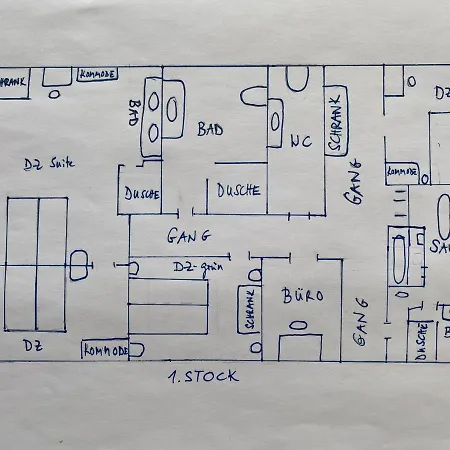 CHRANK
KOMMODE
DZ
BAD
BAD
WC
SCHRANK
DZ Suite
DUSCHE
DUSCHE
GANG
KOMMODE
GANG
DZ-grün
SCHRANK
BÜRO
GANG
DUSCHE
DZ
KOMMODE
1. STOCK